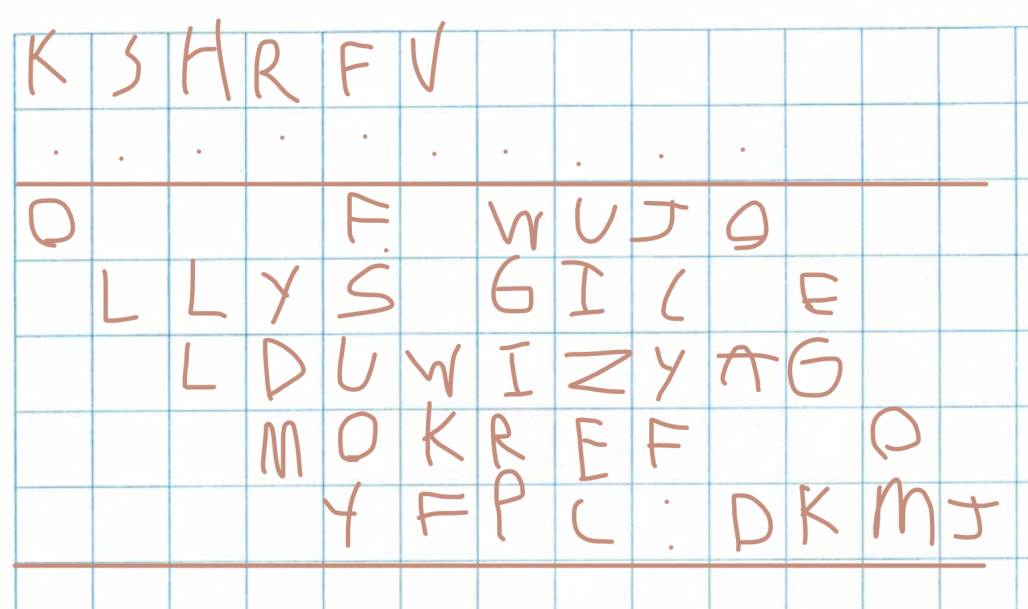 K S H R F V
. . . . . . . . . .
O F. W U J O
L L Y S G I C E
L D U W I Z Y A G
M O K R E F O
Y F P C : D K M J